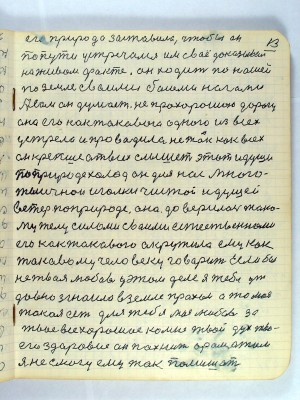 13
его природа заставила, чтобы он
попути устречался им своё доказывал
на живом факте. он ходит по нашей
по земле своими босыми ногами
А сам он думает, не про хорошою дорогу
она его как такового одного из всех
устрела и провадила не так как всех
он крепче этово слышит этот идущи
по природе холод он для нас много-
тысячной иголки чистой идущей
ветер по природе, она доверилась тако-
му телу силами своими естественными
его как такового окружила ему как
таковому человеку говорит если бы
не твоя любов у этом деле я тебя уж
довно згноила в земле прахом а то моя
такая есть для тебя моя любов за
твое все хорошое ко мне твой дух тво-
его здоровие он пахнит ароматним
я не смогу ему так помешат